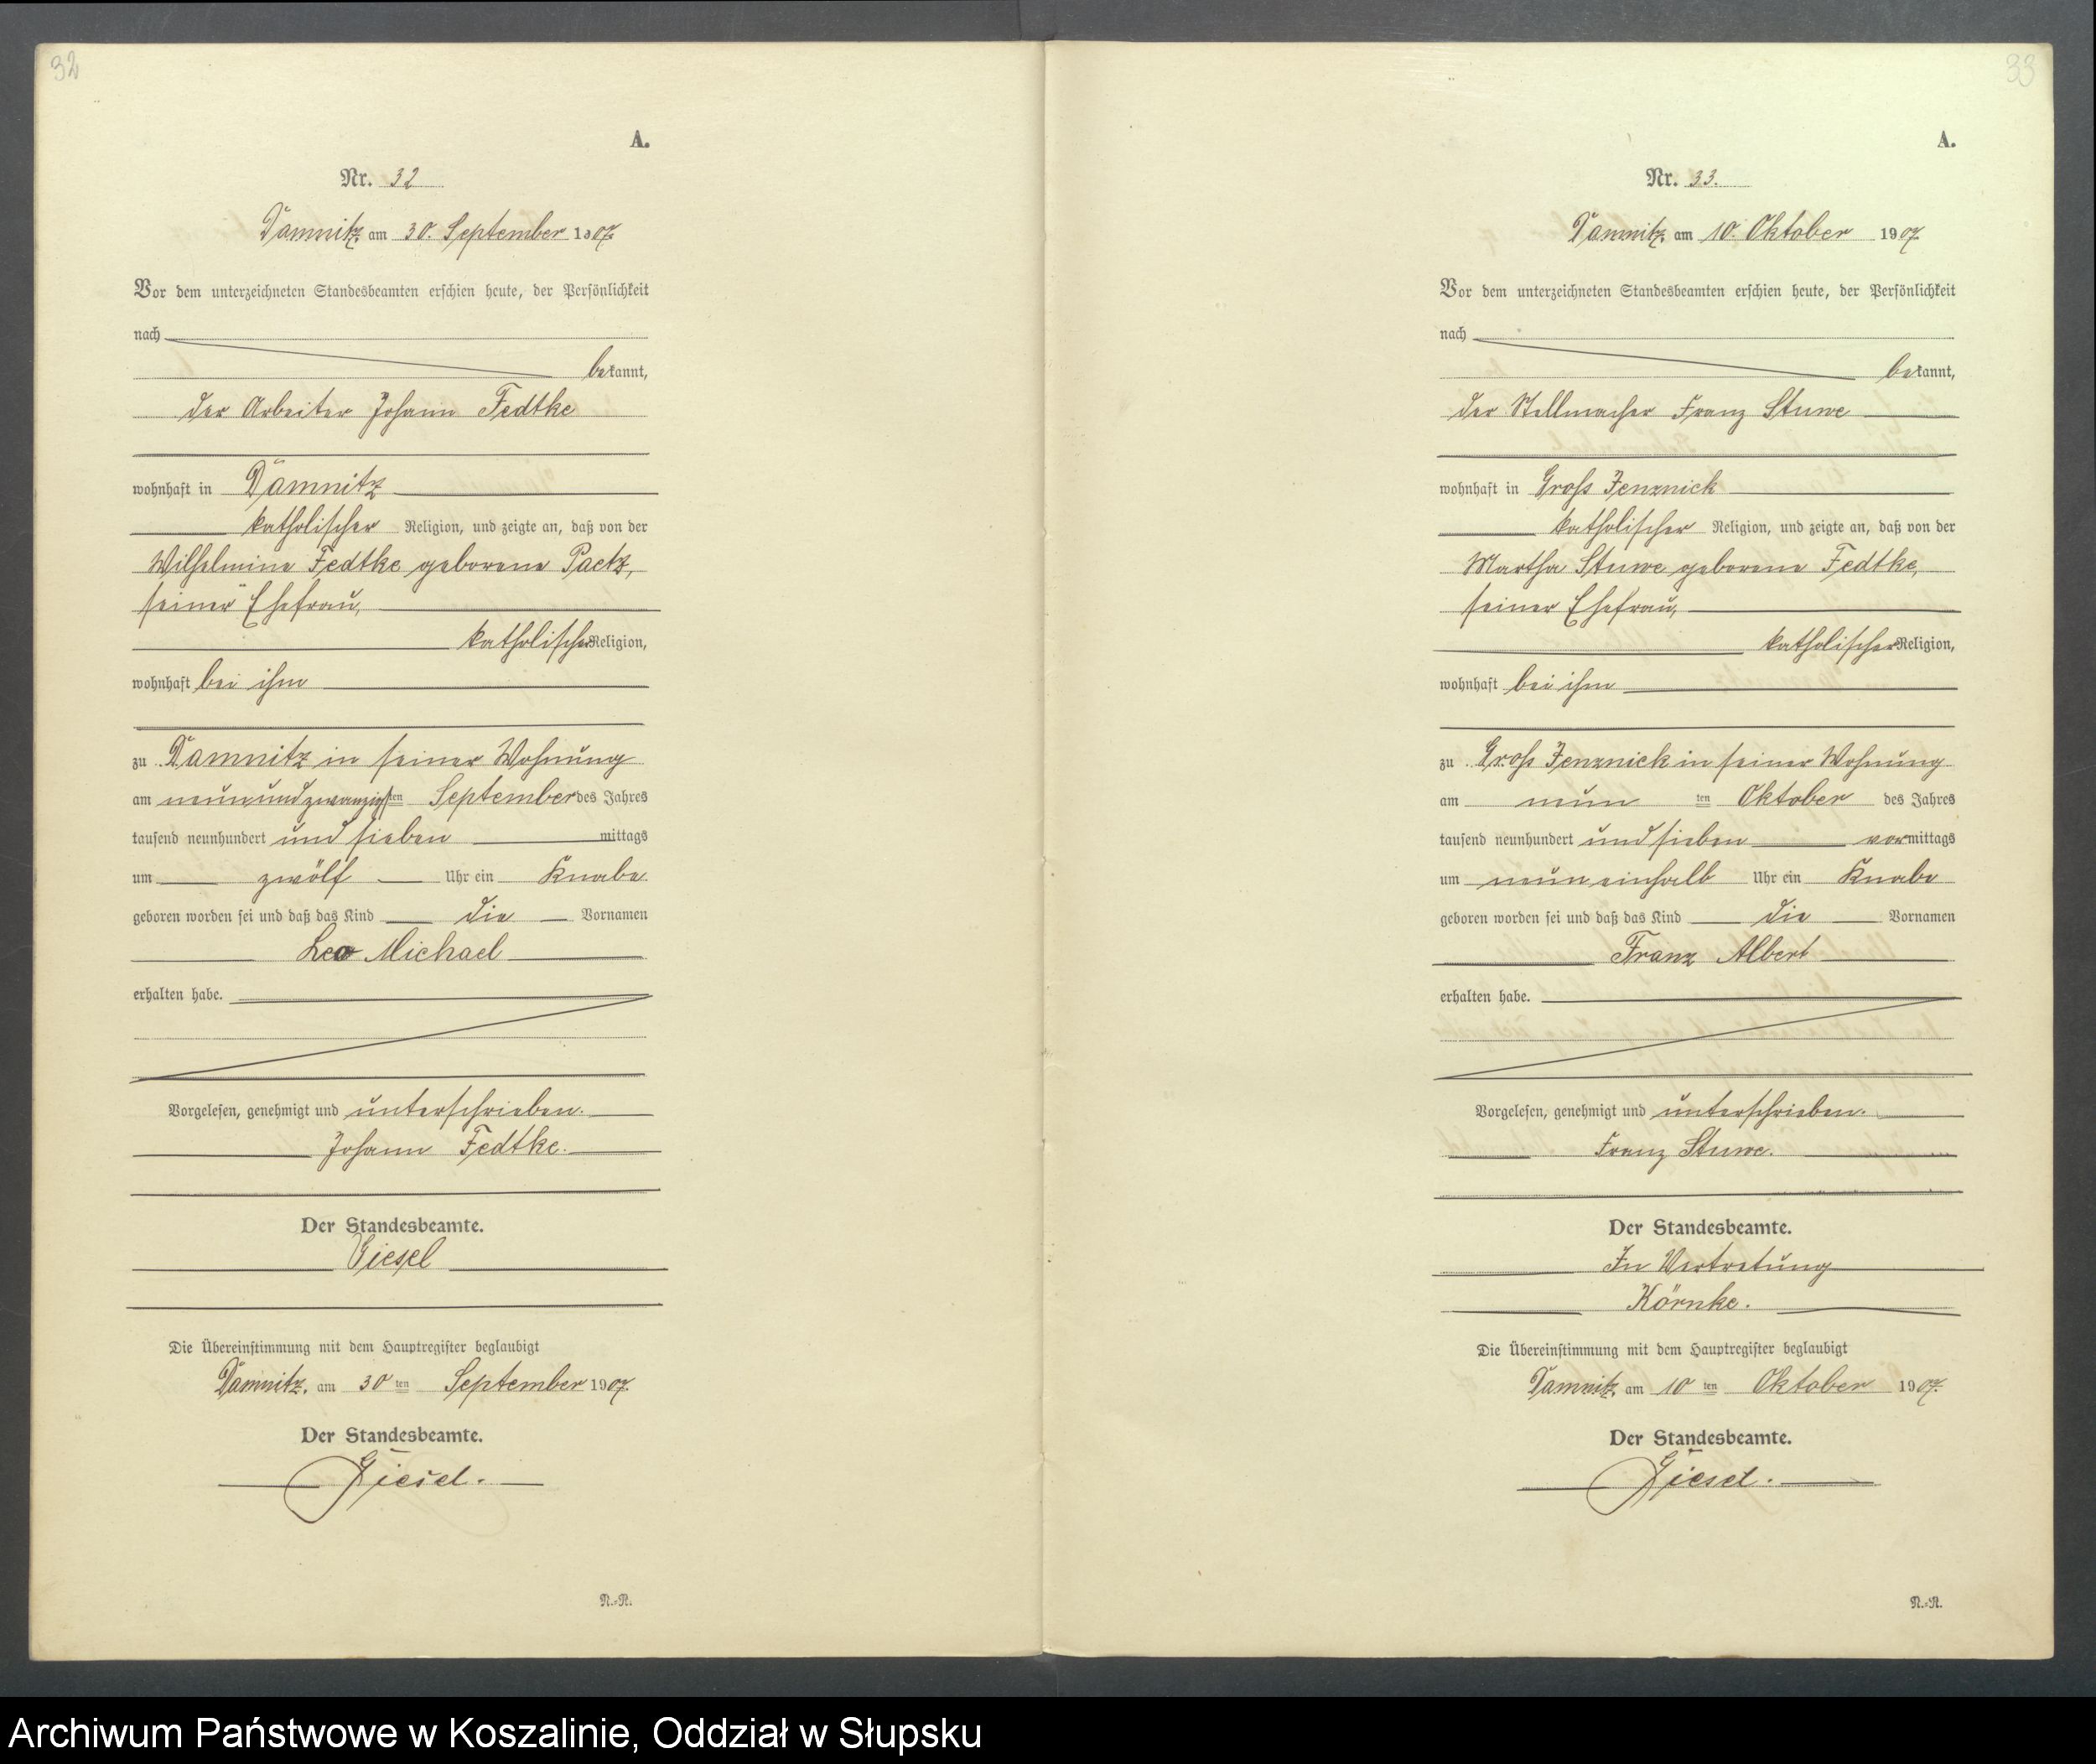 32
A.
Nr. 32
Damnitz, am 30. September 1907.
Vor dem unterzeichneten Standesbeamten erschien heute, der Persönlichkeit
nach
bekannt,
der Arbeiter Johann Fedtke
wohnhaft in Damnitz
katholischer Religion, und zeigte an, daß von der
Wilhelmine Fedtke geborene Paetz,
seiner Ehefrau,
katholischer Religion,
wohnhaft bei ihm
zu Damnitz in seiner Wohnung
am neunundzwanzigsten September des Jahres
tausend neunhundert und sieben mittags
um zwölf Uhr ein Knabe
geboren worden sei und daß das Kind die Vornamen
Leo Michael
erhalten habe.
Vorgelesen, genehmigt und unterschrieben.
Johann Fedtke.
Der Standesbeamte.
Giesel
Die Übereinstimmung mit dem Hauptregister beglaubigt
Damnitz, am 30ten September 1907.
Der Standesbeamte.
Giesel.
N.=R.
33
A.
Nr. 33.
Damnitz, am 10. Oktober 1907
Vor dem unterzeichneten Standesbeamten erschien heute, der Persönlichkeit
nach
bekannt,
der Stellmacher Franz Stuwe
wohnhaft in Groß Jenznick
katholischer Religion, und zeigte an, daß von der
Martha Stuwe geborene Fedtke,
seiner Ehefrau,
katholischer Religion,
wohnhaft bei ihm
zu Groß Jenznick in seiner Wohnung
am neun ten Oktober des Jahres
tausend neunhundert und sieben vormittags
um neun einhalb Uhr ein Knabe
geboren worden sei und daß das Kind die Vornamen
Franz Albert
erhalten habe.
Vorgelesen, genehmigt und unterschrieben.
Franz Stuwe.
Der Standesbeamte.
In Vertretung
Körnke.
Die Übereinstimmung mit dem Hauptregister beglaubigt
Damnitz, am 10 ten Oktober 1907.
Der Standesbeamte.
Giesel.
N.=R.
Archiwum Państwowe w Koszalinie, Oddział w Słupsku